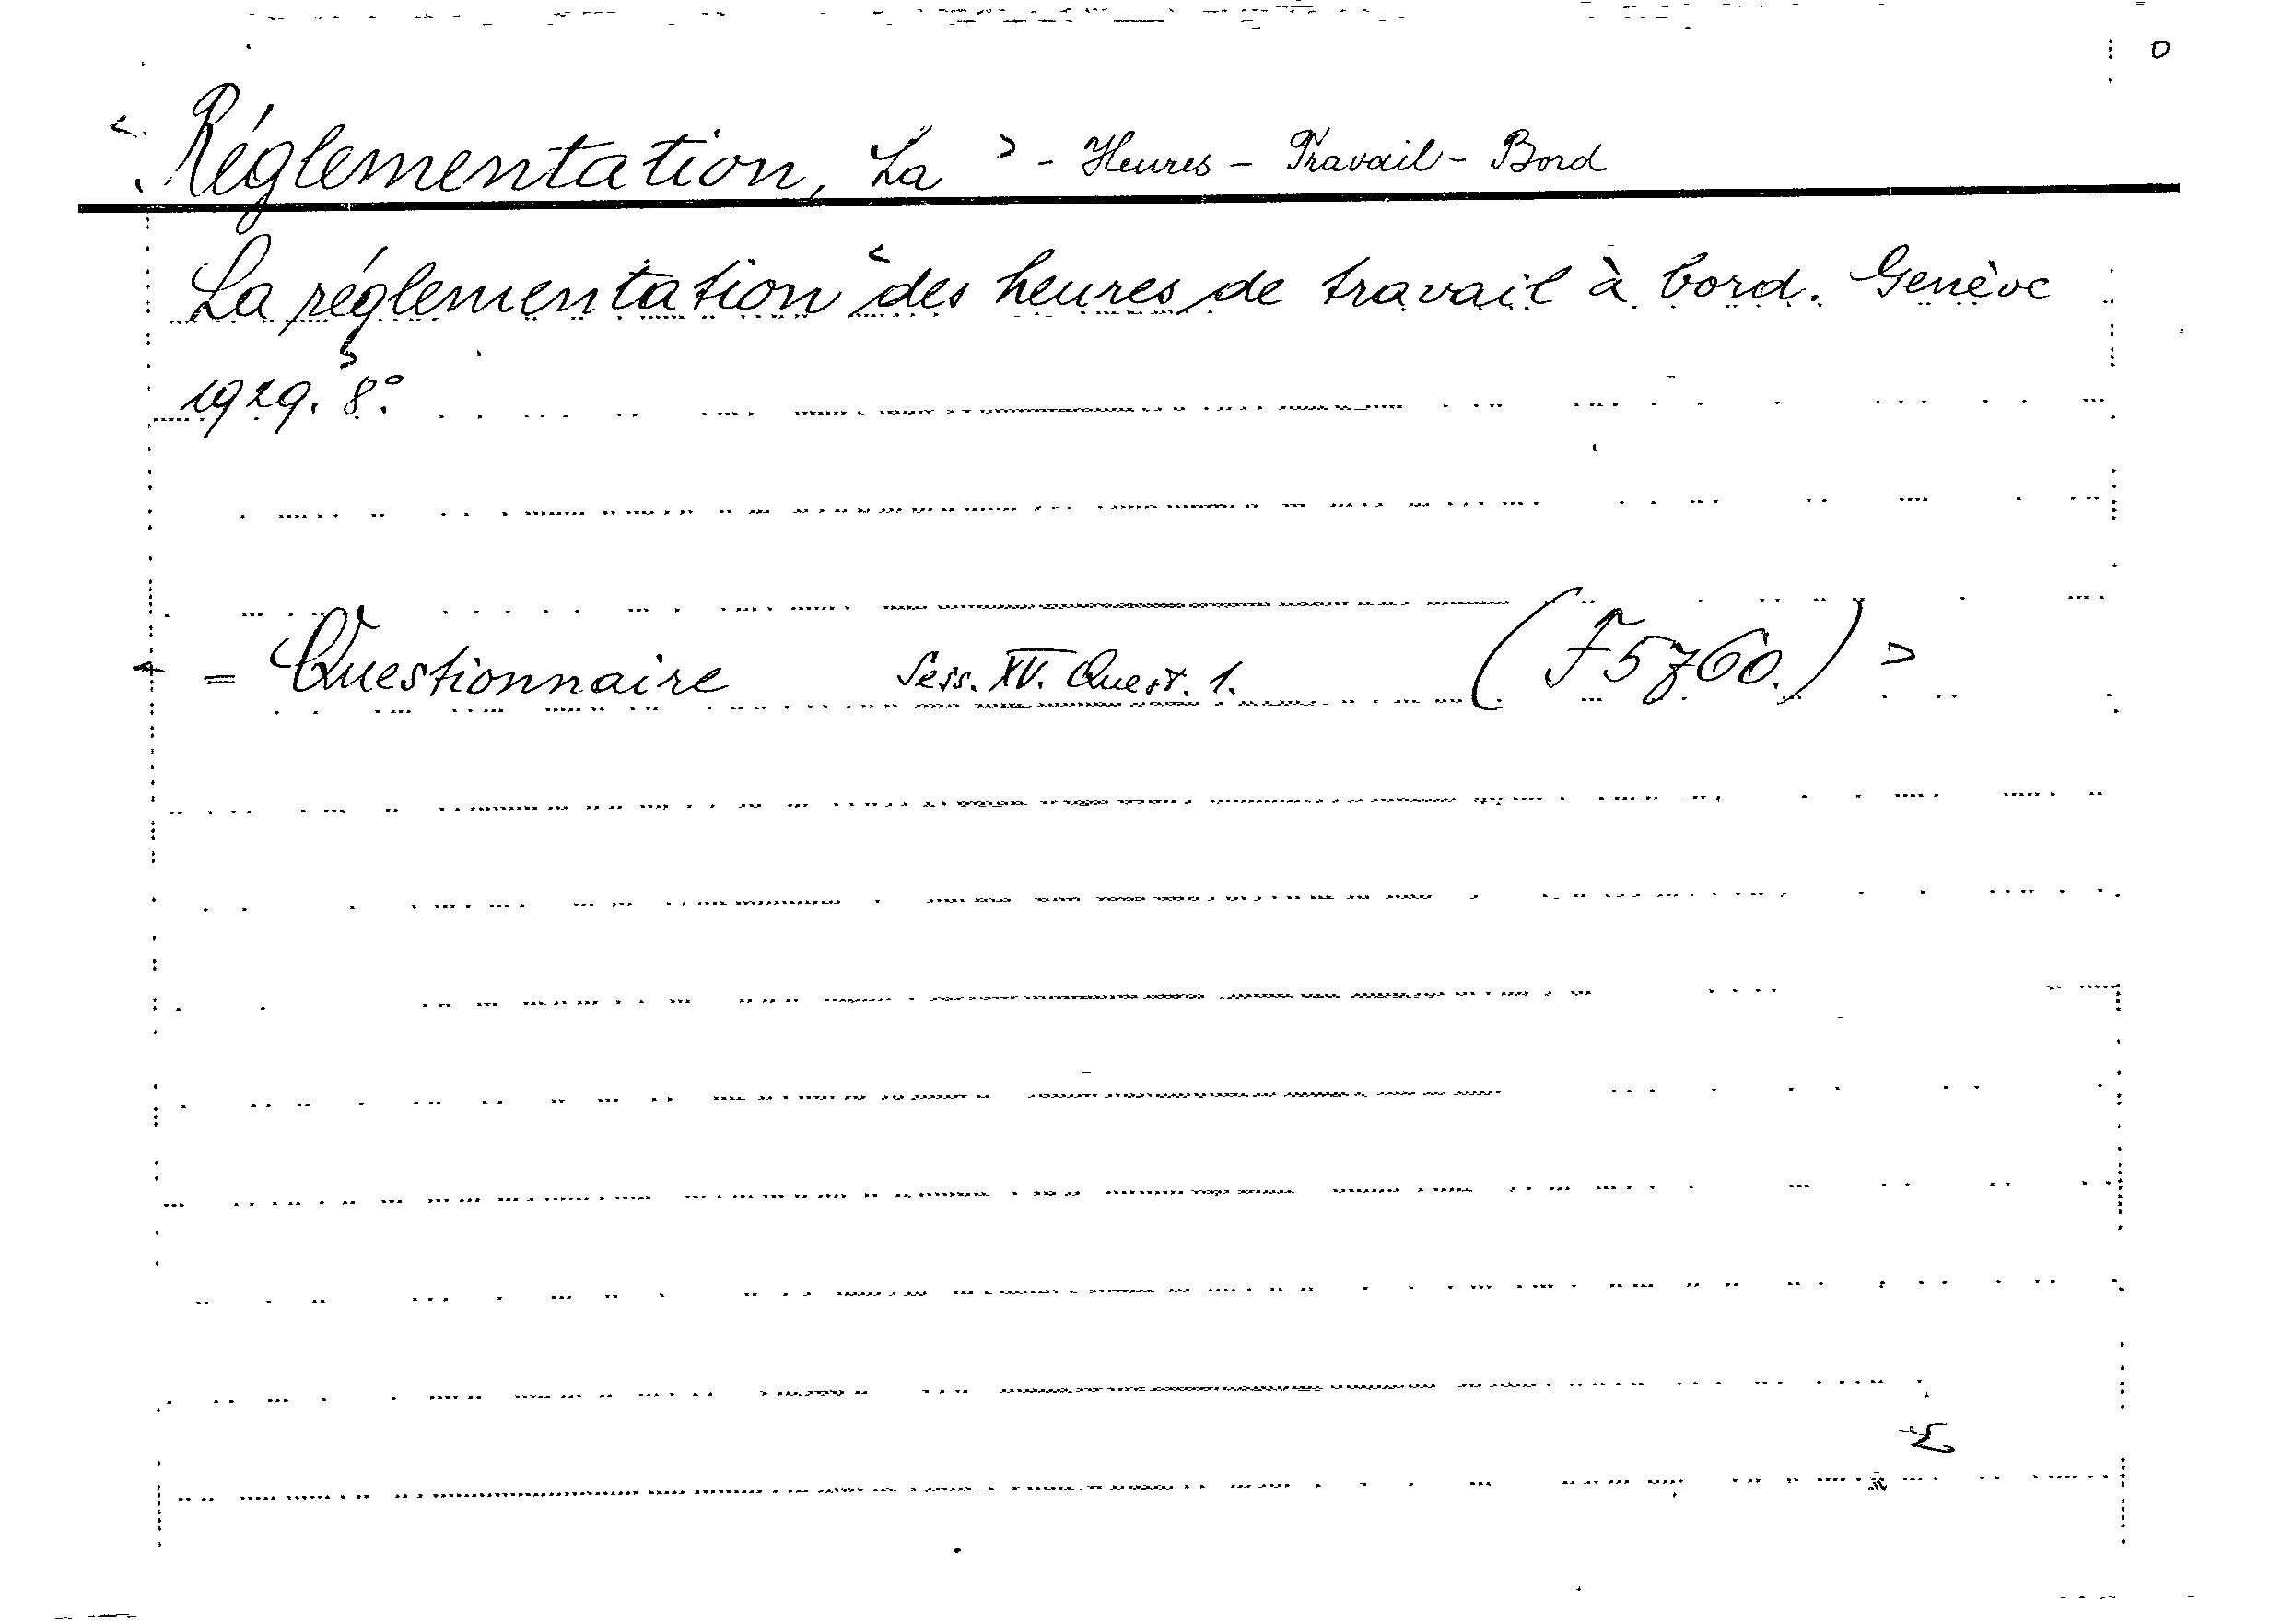 Réglementation, La - Heures - Travail - Bord
La réglementation des heures de travail à bord. Genève
1929. 8°.
= Questionnaire Sess. XV. Quest. 1. (F5760.)